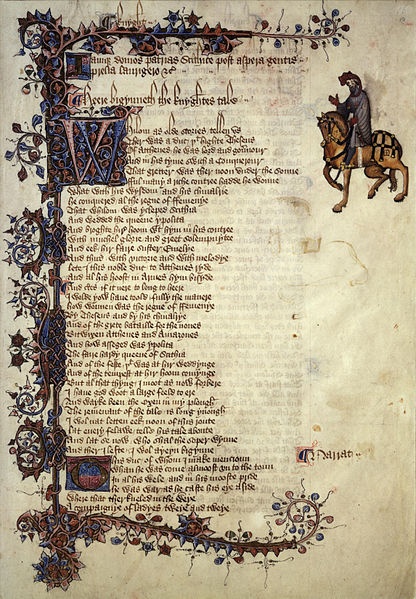 Knyght
Iamque domos patrias Scithice post aspera gentis
prelia laurigero &c
Heere bigynneth the knyghtes tale
Whilom as olde stories tellen us
Ther was a duc þt highte Theseus
Of Atthenes he was lord and gouernour
And in his tyme swich a Conquerour
That gretter was ther noon vnder the sonne
fful many a riche contree hadde he wonne
What with his wysdom and his chiualrie
He conquered al the regne of ffemenye
That whilom was ycleped Scithia
And wedded the queene ypolita
And broghte hir hoom with hym in his contree
With muchel glorie and greet solempnytee
And eek hir faire suster Emelye
And thus with victorie and with melodye
Lete I this noble duc to Atthenes ryde
And al his hoost in Armes hym bisyde
And certes if it nere to long to heere
I wolde yow haue toold fully the manere
How wonnen was the regne of ffemenye
By Theseus and by his chiualrye
And of the grete bataille for the nones
Bitwixen Atthenes and Amazones
And how asseged was ypolita
The faire hardy queene of Scithia
And of the feste þt was at hir weddynge
And of the tempest at hir hoom comynge
But al that thyng I moot as now forbere
I haue god woot a large feeld to ere
And wayke been the oxen in my plough
The remenant of the tale is long ynough
I wol nat letten eek noon of this route
Lat euery felawe telle his tale aboute
And lat se now who shal the soper wynne
And ther I lefte I wol ayeyn bigynne
This duc of whom I make mencioun
Narrat
Whan he was come almoost vnto the toun
In al his wele and in his mooste pride
He was war as he caste his eye aside
Where that ther kneled in the weye
A compaignie of ladyes tweye and tweye